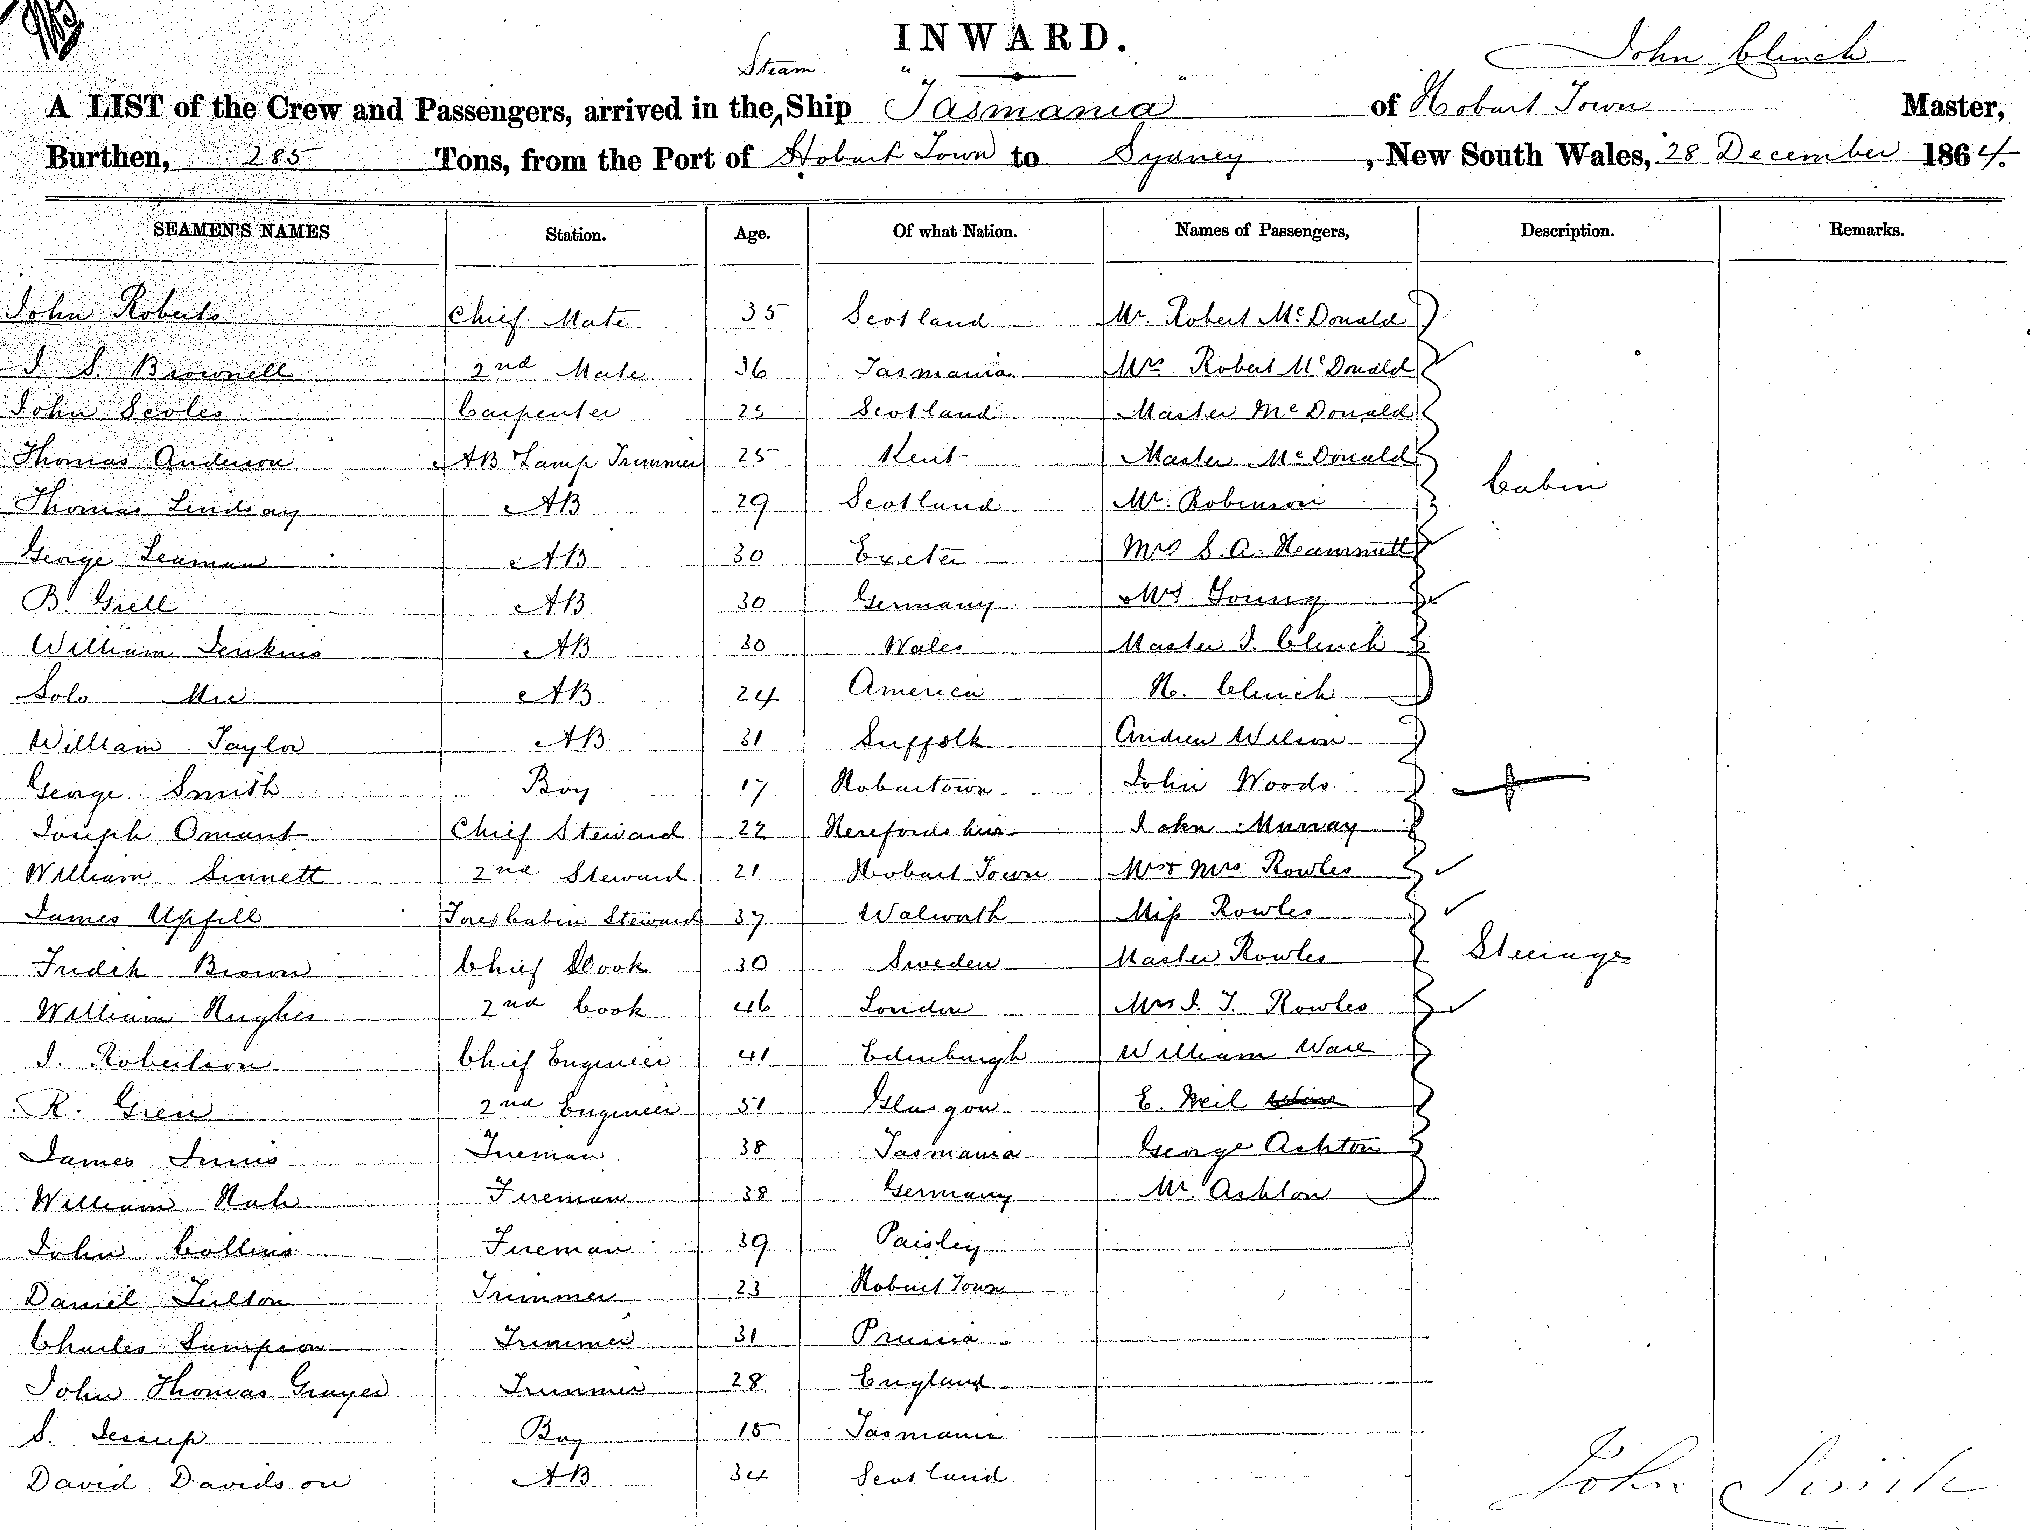 INWARD.
John Clinch
Steam
A LIST of the Crew and Passengers, arrived in the ^ Ship "Tasmania" of Hobart Town Master,
Burthen, 285 Tons, from the Port of Hobart Town to Sydney, New South Wales, 28 December 1864.
SEAMEN'S NAMES Station. Age. Of what Nation. Names of Passengers, Description. Remarks.
John Roberts Chief Mate 35 Scotland Mr. Robert McDonald
J S. Brownell 2nd Mate 36 Tasmania Mrs Robert McDonald
John Scoles Carpenter 25 Scotland Master McDonald
Thomas Anderson AB Lamp Trimmer 25 Kent Master McDonald
Cabin
Thomas Lindsay AB 29 Scotland Mr. Robinson
George Seaman AB 30 Exeter Mrs S. A. Hammett
B. Grell AB 30 Germany Mrs Young
William Jenkins AB 30 Wales Master J. Clinch
Solo AB 24 America H. Clinch
William Taylor AB 31 Suffolk Andrew Wilson
George Smith Boy 17 Hobartown John Woods
Joseph Omant Chief Steward 22 Herefordshire John Murray
William Sinnett 2nd Steward 21 Hobart Town Mr & Mrs Rowles
James Upfill Fore Cabin Steward 37 Walworth Miss Rowles
Fredk Brown Chief Cook 30 Sweden Master Rowles Steerage
William Hughes 2nd Cook 46 London Mrs J. T. Rowles
J. Robertson Chief Engineer 41 Edinburgh William Ware
R. Gren 2nd Engineer 51 Glasgow E. Neil
James Innis Fireman 38 Tasmania George Ashton
William Fireman 38 Germany Mr Ashton
John Collins Fireman 39 Paisley
Daniel Fulton Trimmer 23 Hobart Town
Charles Sampson Trimmer 31 Prussia
John Thomas Grayer Trimmer 28 England
S. Jessup Boy 15 Tasmania
David Davidson AB 34 Scotland
John Clinch